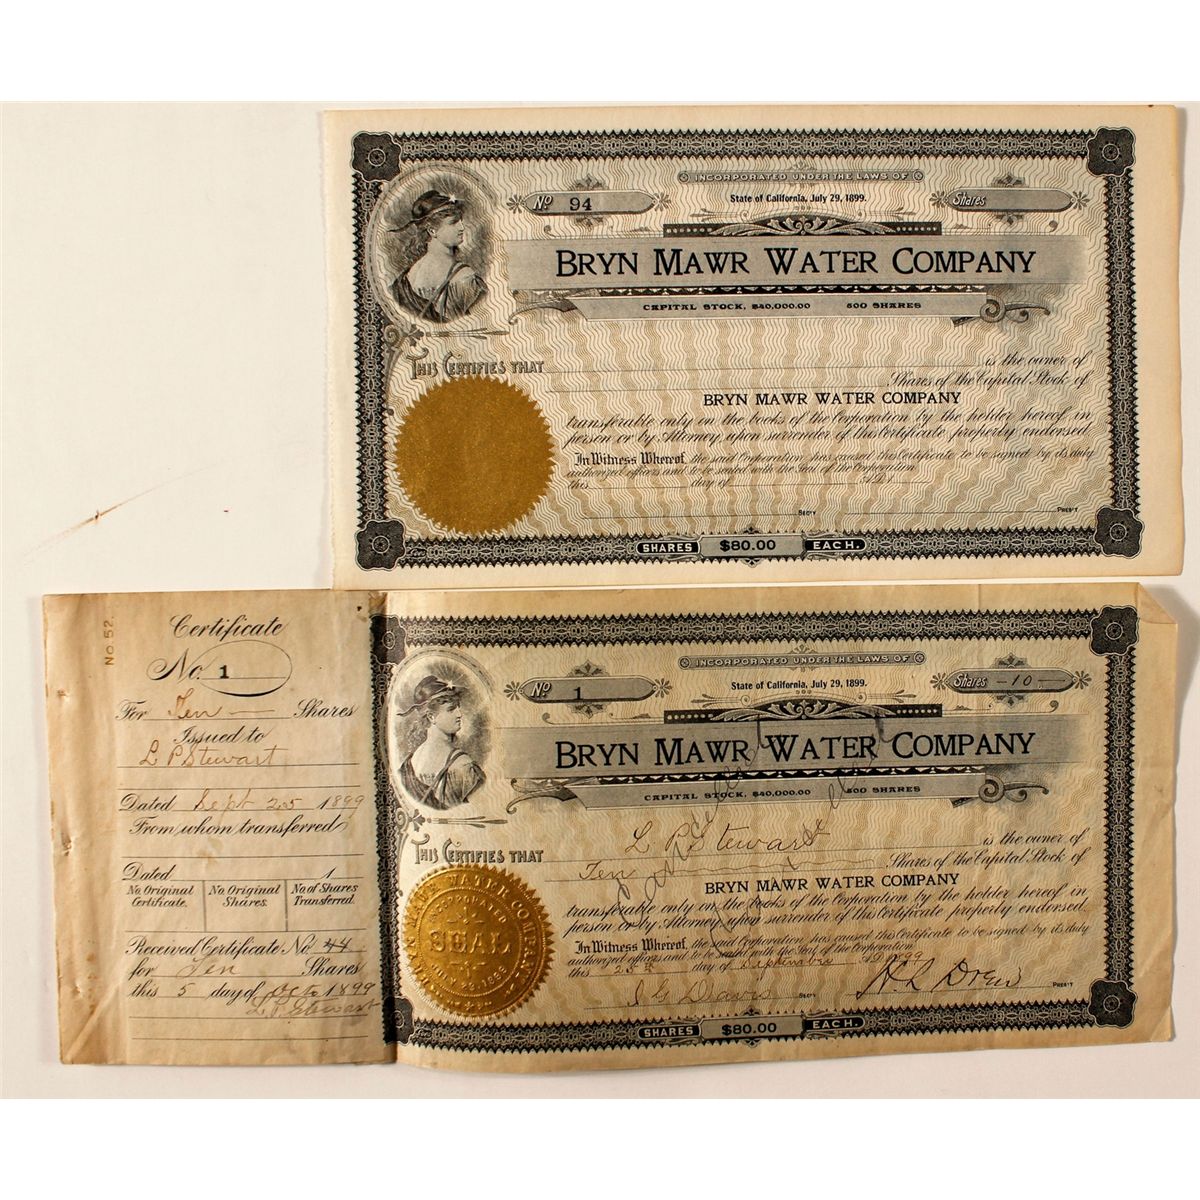 INCORPORATED UNDER THE LAWS OF
No 94
State of California, July 29, 1899.
Shares
BRYN MAWR WATER COMPANY
CAPITAL STOCK, $40,000.00 500 SHARES
THIS CERTIFIES THAT is the owner of
Shares of the Capital Stock of
BRYN MAWR WATER COMPANY
transferable only on the books of the Corporation by the holder hereof in
person or by Attorney, upon surrender of this Certificate properly endorsed.
In Witness Whereof, the said Corporation has caused this Certificate to be signed by its duly
authorized officers and to be sealed with the Seal of the Corporation
this day of A.D.1
SECT'Y PRES'T
SHARES $80.00 EACH.
No 52.
Certificate
No. 1
For Ten Shares
Issued to
L P Stewart
Dated Sept 25 1899
From whom transferred
Dated 1
No. Original Certificate. No. Original Shares. No. of Shares Transferred.
Received Certificate No.
for Ten Shares
this 5 day of Oct 1899
L. P. Stewart
INCORPORATED UNDER THE LAWS OF
No 1
State of California, July 29, 1899.
Shares -10-
BRYN MAWR WATER COMPANY
CAPITAL STOCK, $40,000.00 500 SHARES
L P Stewart is the owner of
THIS CERTIFIES THAT
Ten Shares of the Capital Stock of
BRYN MAWR WATER COMPANY
transferable only on the books of the Corporation by the holder hereof in
person or by Attorney, upon surrender of this Certificate properly endorsed.
In Witness Whereof, the said Corporation has caused this Certificate to be signed by its duly
authorized officers and to be sealed with the Seal of the Corporation
this 25th day of September A.D. 1899
J G Davis SECT'Y H L Drew PRES'T
BRYN MAWR WATER COMPANY
INCORPORATED
SEAL
JULY 29, 1899
SHARES $80.00 EACH.